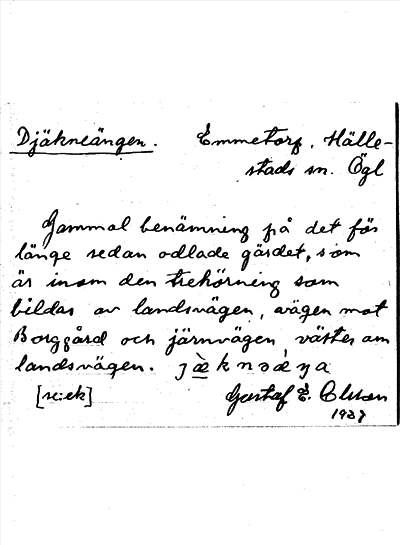 Djäkneängen. Emmetorp, Hälle-
stads sn. Ögl
Gammal benämning på det för
länge sedan odlade gärdet, som
är inom den trehörning som
bildas av landsvägen, vägen mot
Borggård och järnvägen, väster om
landsvägen.
[sc:ek] Gustaf E. Olsson
1937